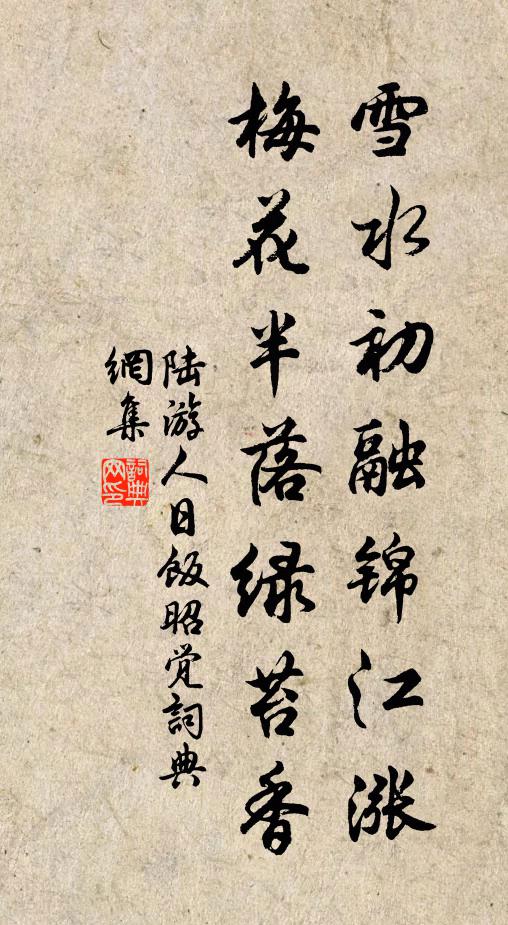 雪水初融锦江涨
梅花半落绿苔香
陆游人日飯昭觉詞典
網集
詞典
网印